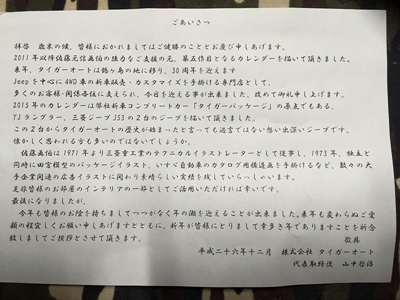 ごあいさつ
拝啓 歳末の候、皆様におかれましてはご健勝のこととお慶び申しあげます。
2011年以降佐藤元信画伯の強力なご支援の元、第五作目となるカレンダーを描いて頂きました。
来年、タイガーオートは鶴ヶ島の地に移り、30周年を迎えます
Jeepを中心に4WD車の新車販売・カスタマイズを手掛ける専門店として、
多くのお客様・関係各位に支えられ、今日を迎える事が出来ました。改めて御礼申し上げます。
2015年のカレンダーは弊社新車コンプリートカー「タイガーパッケージ」の原点でもある、
TJラングラー、三菱ジープJ53の2台のジープを描いて頂きました。
この2台からタイガーオートの歴史が始まったと言っても過言ではない想い出深いジープです。
懐かしく思われる方も多いのではないでしょうか。
佐藤画伯は1971年より三菱重工業のテクニカルイラストレーターとして従事し、1973年、独立と
同時に田宮模型のパッケージイラスト、いすゞ自動車のカタログ用構造画を手掛けるなど、数々の大
手企業関連の広告イラストに関わり素晴らしい実績を残していらっしゃいます。
是非皆様のお部屋のインテリアの一部としてご活用いただければ幸いです。
最後になりましたが、
今年も皆様のお陰を持ちましてつつがなく年の瀬を迎えることが出来ました。来年も変わらぬご愛
顧の程宜しくお願い申しあげますとともに、新年が皆様にとりまして幸多き年でありますことを祈念
致しましてご挨拶とさせて頂きます。
敬具
平成二十六年十二月 株式会社 タイガーオート
代表取締役 山中哲浩